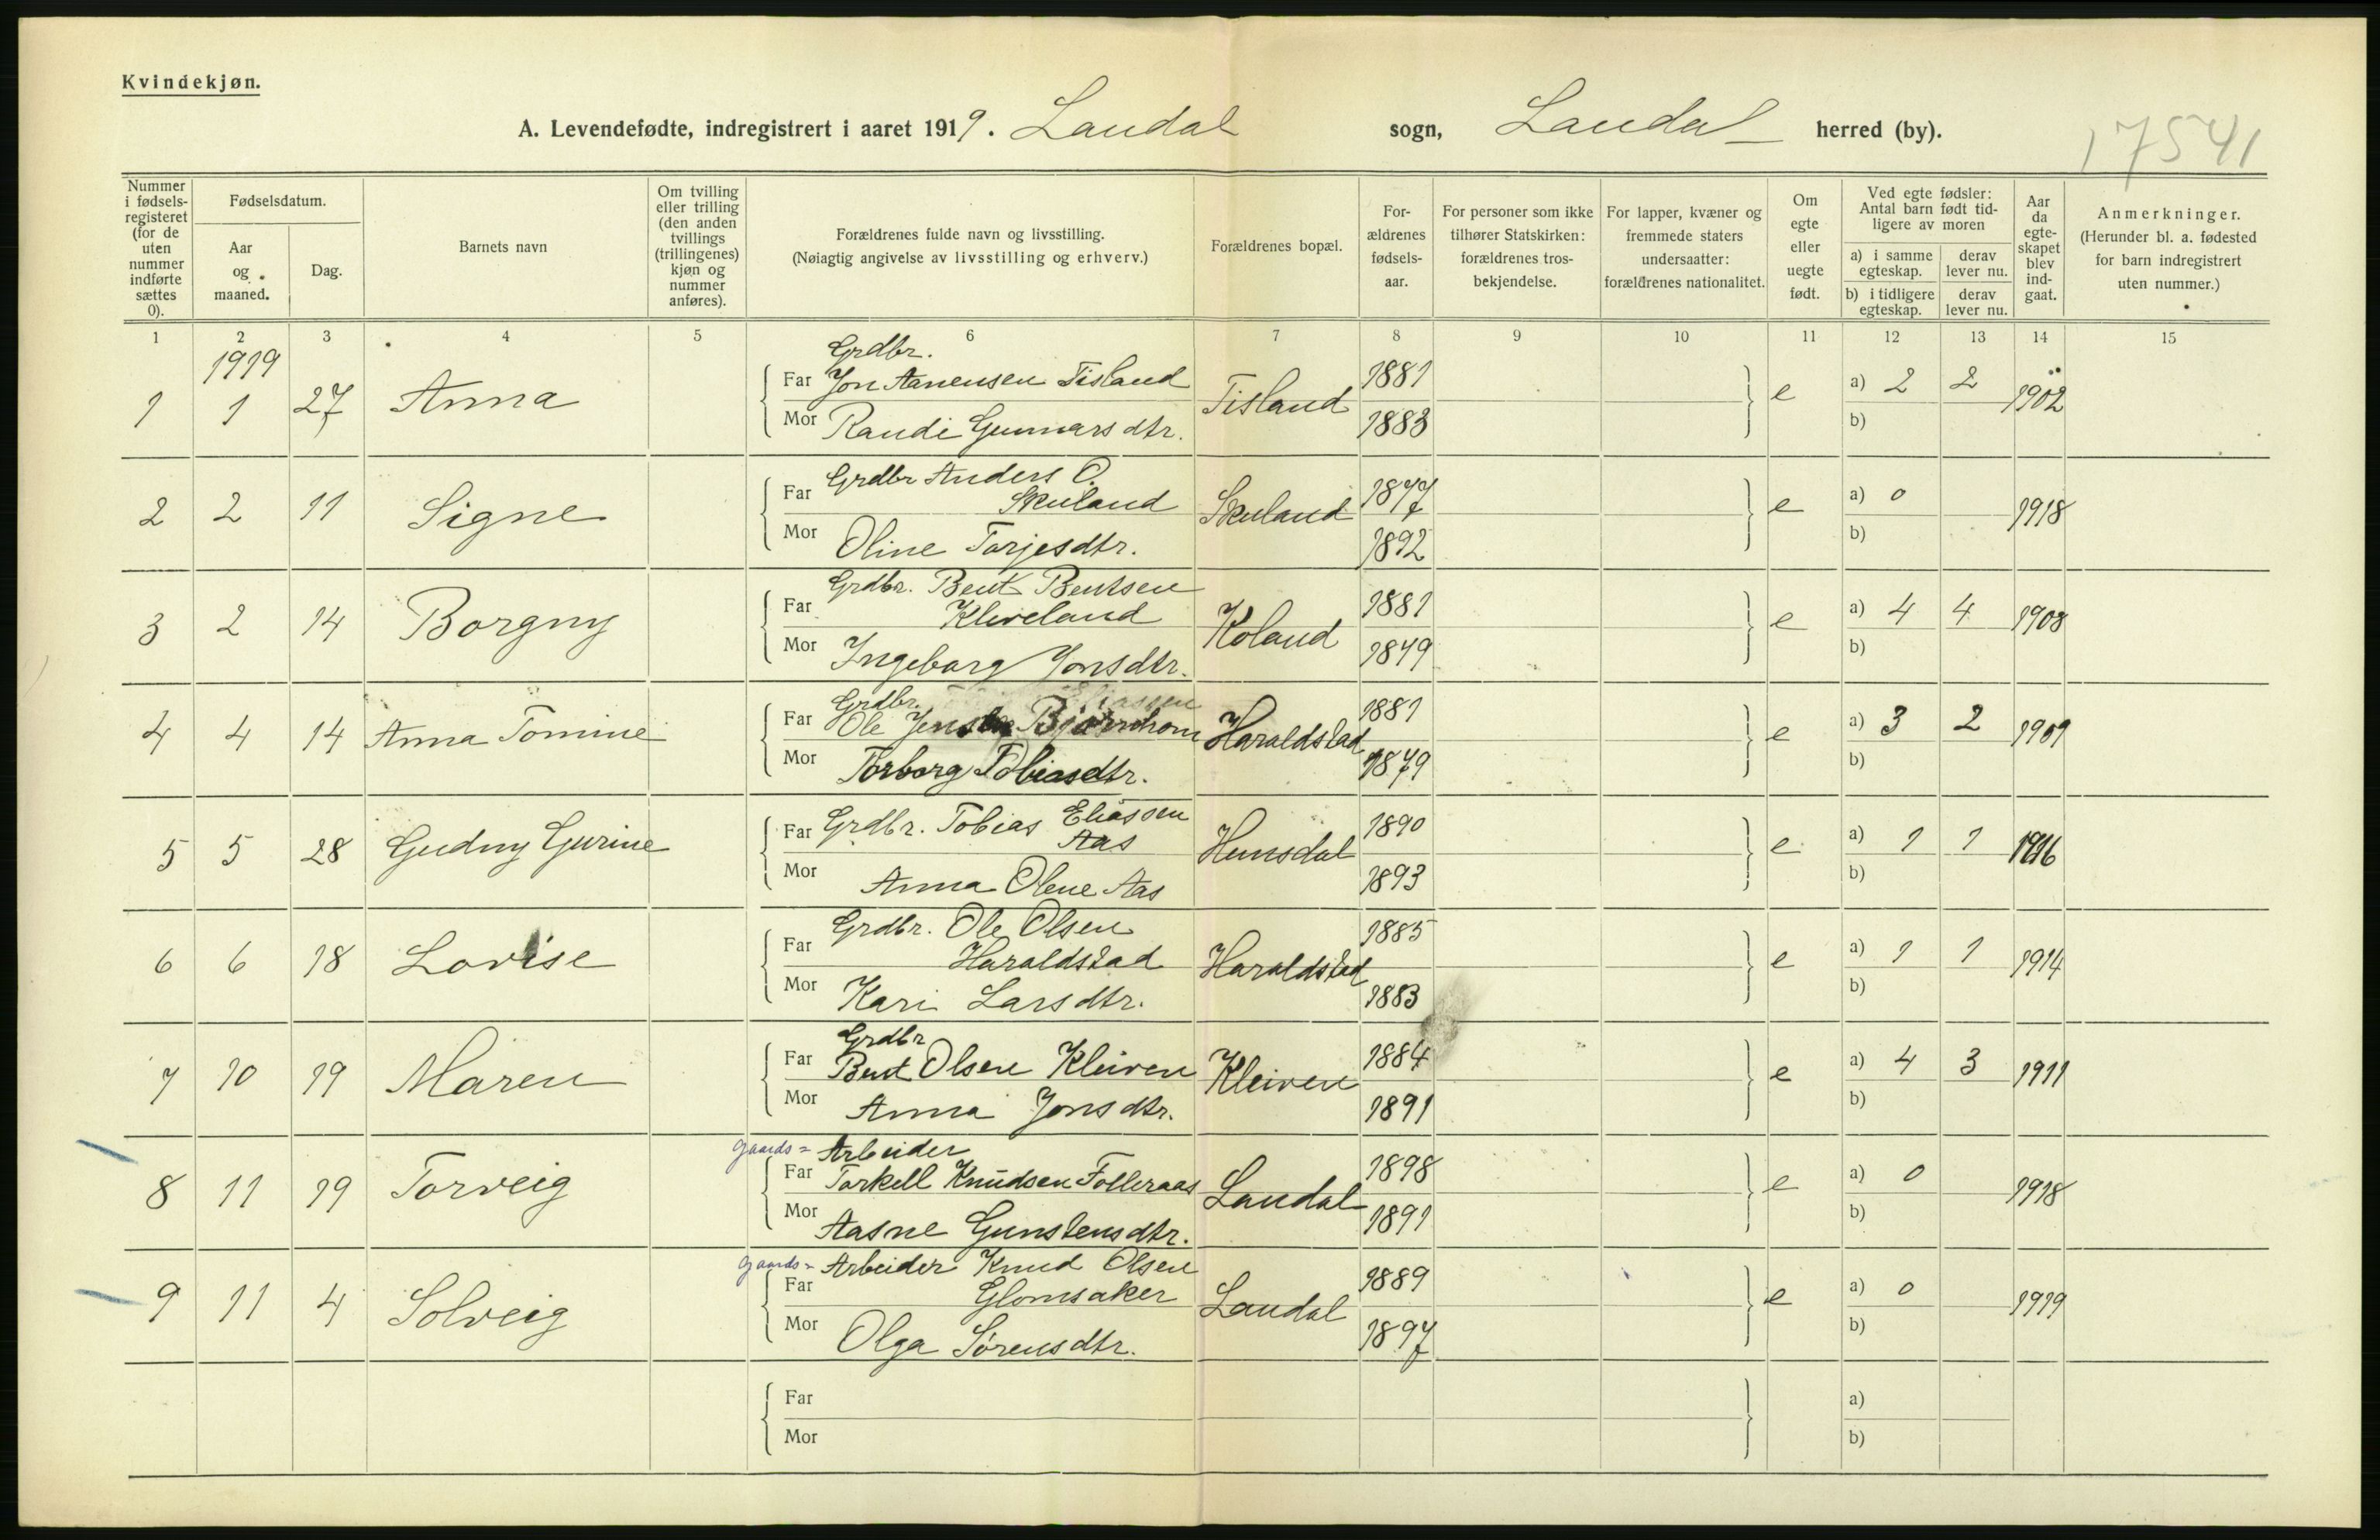 Kvindekjøn.
A. Levendefødte, indregistrert i aaret 1919. Laudal sogn, Laudal herred (by).
17541
Nummer i fødsels-registeret (for de uten nummer indførte sættes 0).
Fødselsdatum.
Aar og maaned.
Dag.
Barnets navn
Om tvilling eller trilling (den anden tvillings (trillingenes) kjøn og nummer anføres).
Forældrenes fulde navn og livsstilling.
(Nøiagtig angivelse av livsstilling og erhverv.)
Forældrenes bopæl.
For-ældrenes fødsels-aar.
For personer som ikke tilhører Statskirken: forældrenes tros-bekjendelse.
For lapper, kvæner og fremmede staters undersaatter: forældrenes nationalitet.
Om egte eller uegte født.
Ved egte fødsler: Antal barn født tid-ligere av moren
a) i samme egteskap.
derav lever nu.
b) i tidligere egteskap.
derav lever nu.
Aar da egte-skapet blev ind-gaat.
Anmerkninger.
(Herunder bl. a. fødested for barn indregistrert uten nummer.)
1 2 3 4 5 6 7 8 9 10 11 12 13 14 15
1919
Grdbr.
1 1 27 Anna Far Jon Aanensen Tisland Tisland 1881 e a) 2 2 1902
Mor Randi Gunnarsdtr. 1883 b)
Grdbr Anders O.
2 2 11 Signe Far Skuland Skuland 1877 e a) 0 1918
Mor Oline Tarjesdtr. 1892 b)
Grdbr. Bent Bentsen
3 2 14 Borgny Far Kleveland Koland 1881 e a) 4 4 1908
Mor Ingeborg Jonsdtr. 1879 b)
Grdbr.
4 4 14 Anna Tomine Far Ole Jensen Haraldstad 1881 e a) 3 2 1909
Mor Torborg Tobiasdtr. 1879 b)
Grdbr. Tobias Eliassen
5 5 28 Gudny Gurine Far Aas Hunsdal 1890 e a) 1 1 1916
Mor Anna Olene Aas 1893 b)
Grdbr. Ole Olsen
6 6 18 Lovise Far Haraldstad Haraldstad 1885 e a) 1 1 1914
Mor Kari Larsdtr. 1883 b)
Grdbr
7 10 19 Maren Far Bent Olsen Kleiven Kleiven 1884 e a) 4 3 1911
Mor Anna Jonsdtr. 1891 b)
gaards- Arbeider
8 11 19 Torveig Far Torkell Knudsen Folleraas Laudal 1898 e a) 0 1918
Mor Aasne Gunstensdtr. 1891 b)
gaards- Arbeider Knud Olsen
9 11 4 Solveig Far Glomsaker Laudal 1889 e a) 0 1919
Mor Olga Sørensdtr. 1897 b)
Far a)
Mor b)